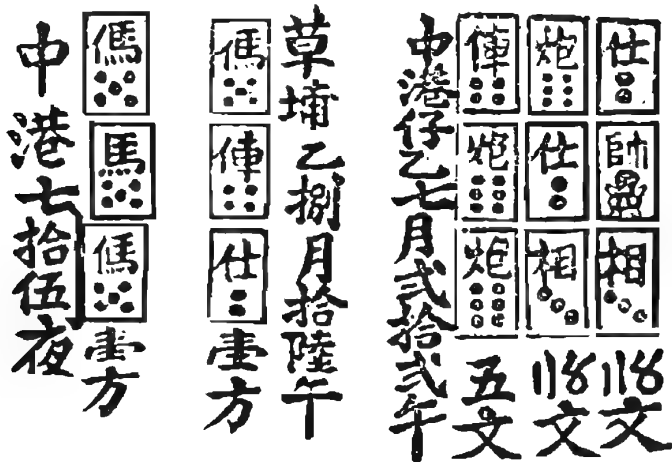 仕帥相文
炮仕相文
俥炮炮五文
中港仔乙七月弍拾弍午
草埔乙捌月拾陸午
傌俥仕壹方
傌馬傌壹方
中港七拾伍夜